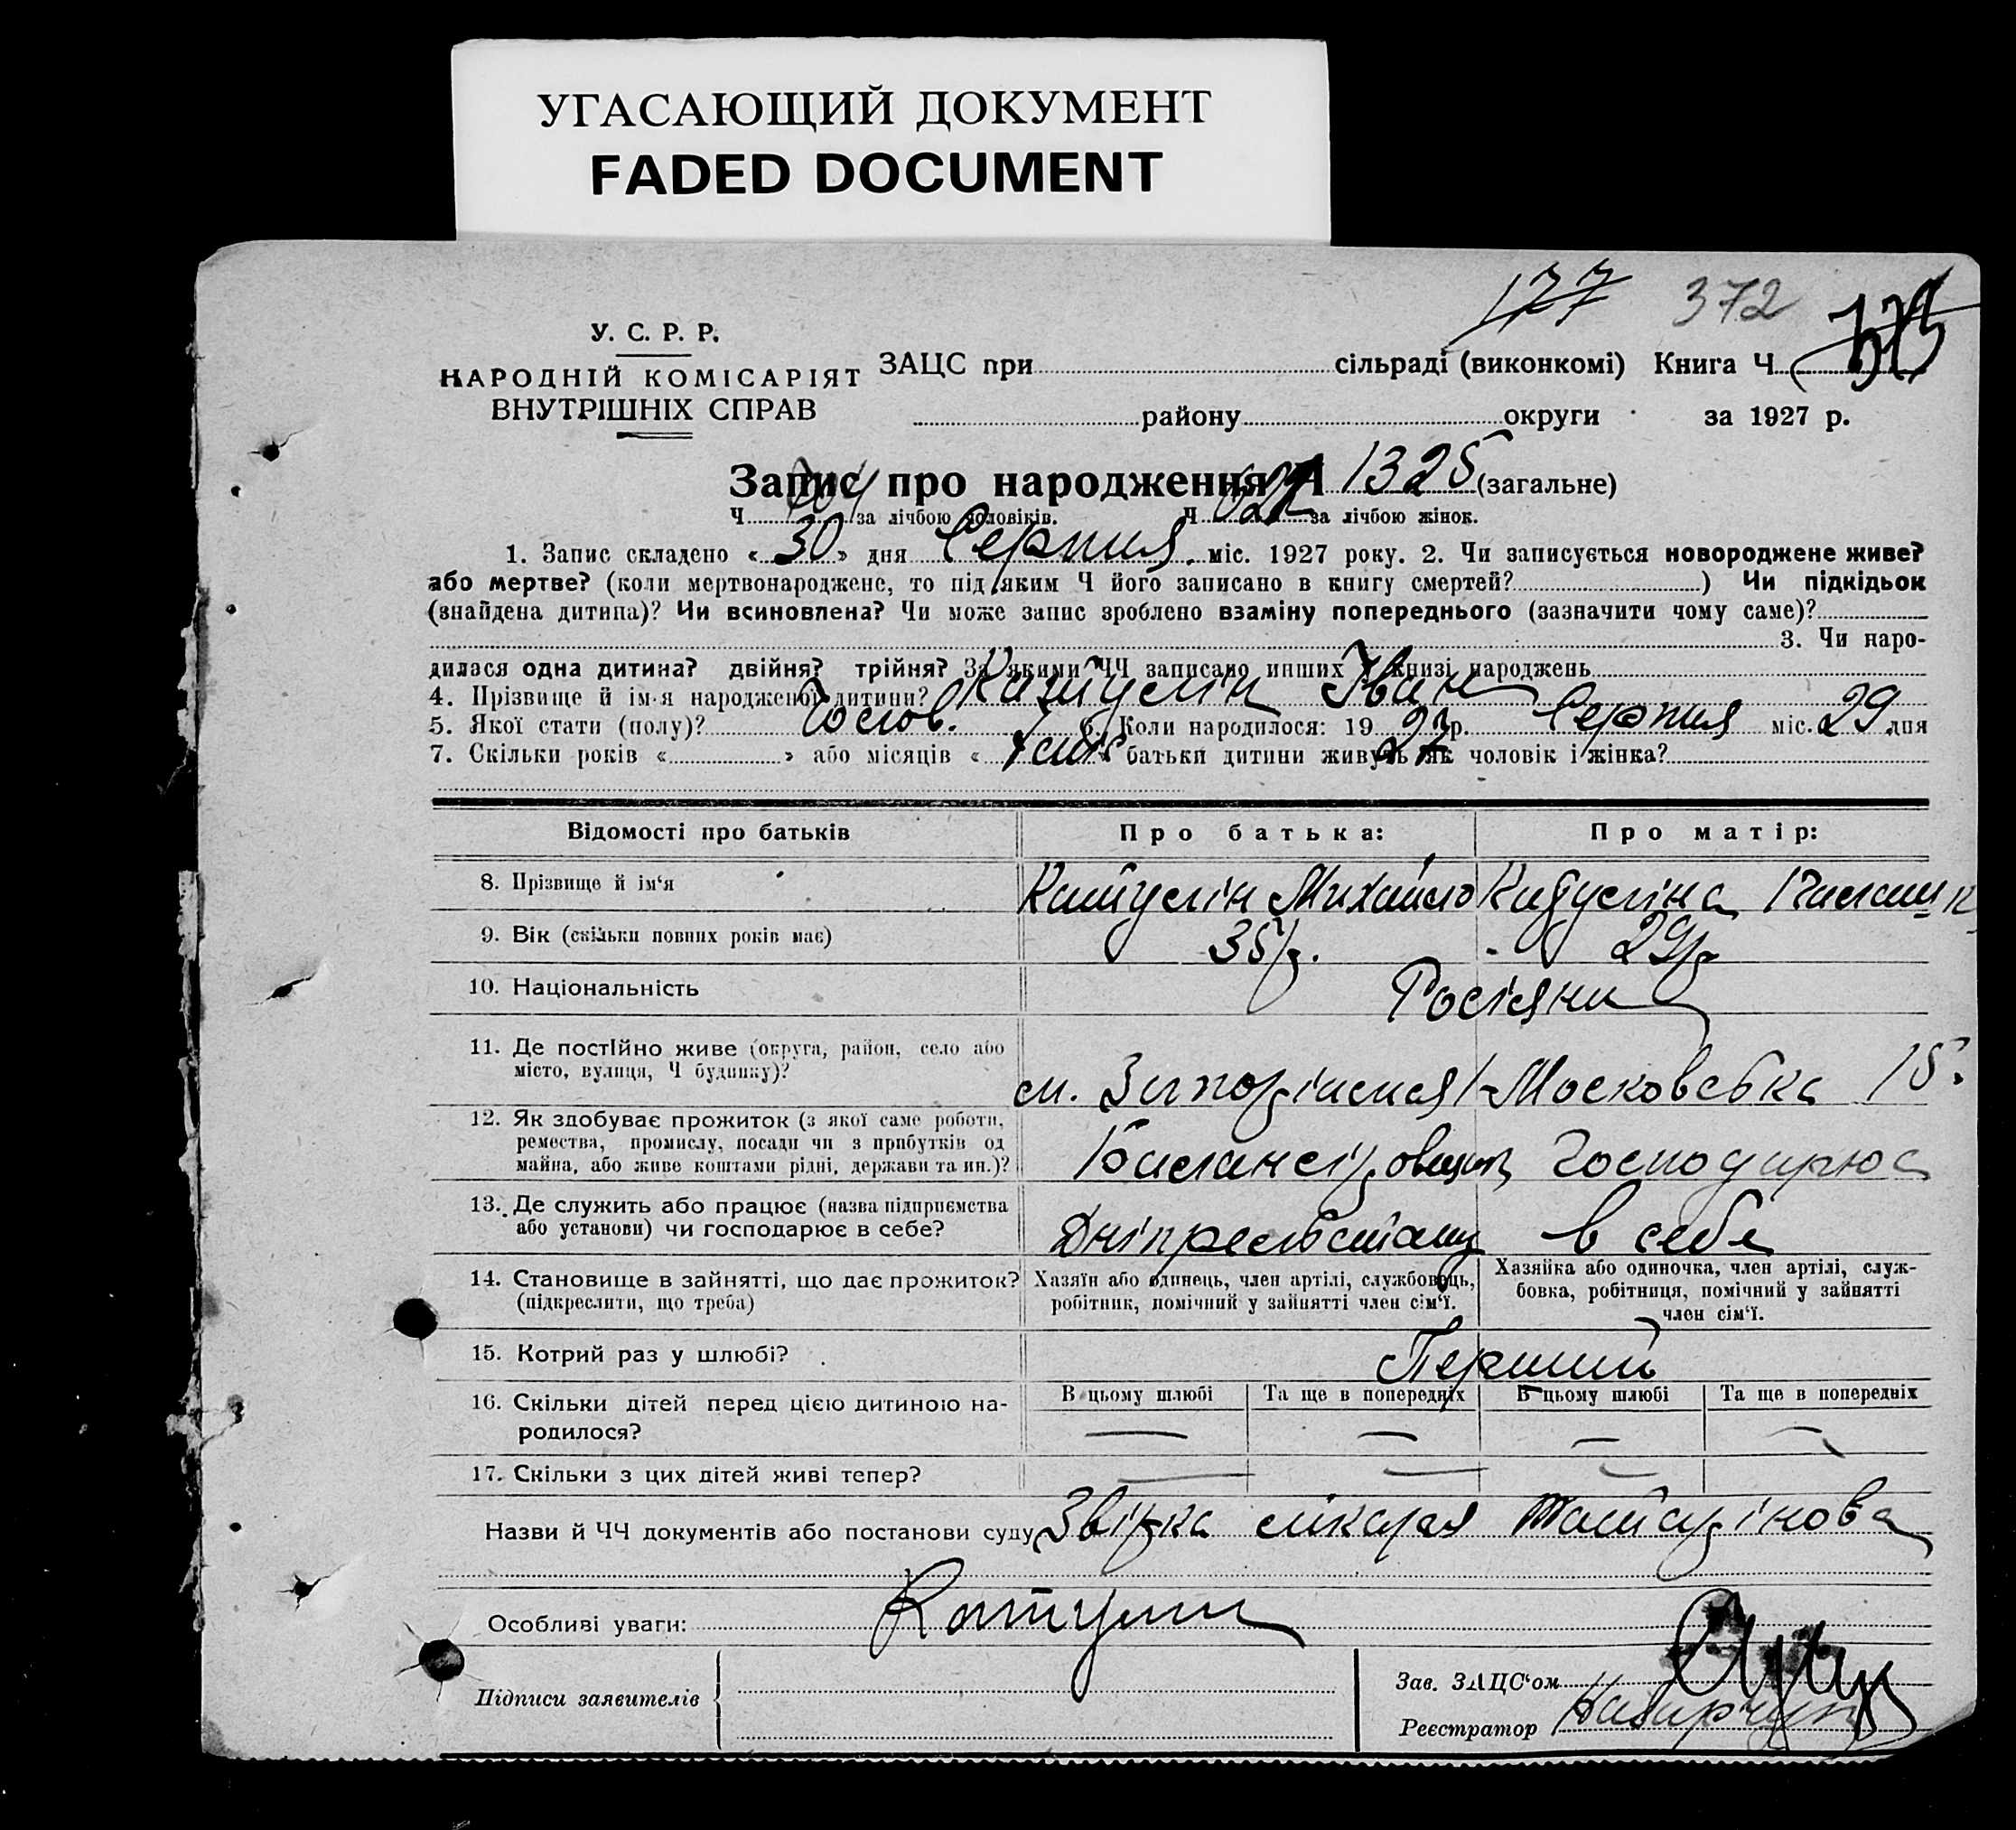 УГАСАЮЩИЙ ДОКУМЕНТ
FADED DOCUMENT
177 372
У. С. Р. Р.
НАРОДНІЙ КОМІСАРІЯТ
ВНУТРІШНІХ СПРАВ
ЗАЦС при сільраді (виконкомі) Книга Ч
району округи за 1927 р.
Запис про народження Ч 1325 (загальне)
Ч 704 за лічбою чоловіків. Ч за лічбою жінок.
1. Запис складено « 30 » дня Серпня міс. 1927 року. 2. Чи записується новороджене живе?
або мертве? (коли мертвонароджене, то під яким Ч його записано в книгу смертей? ) Чи підкідьок
(знайдена дитина)? Чи всиновлена? Чи може запис зроблено взаміну попереднього (зазначити чому саме)?
3. Чи наро-
дилася одна дитина? двійня? трійня? За якими ЧЧ записано инших у книзі народжень
4. Прізвище й ім'я народженої дитини? Катулін Іван
5. Якої стати (полу)? Чолов. 6. Коли народилося: 19 27 р. Серпня міс. 29 дня
7. Скільки років « » або місяців « » батьки дитини живуть як чоловік і жінка?
Відомості про батьків Про батька: Про матір:
8. Прізвище й ім'я Катулін Михайло Катуліна
9. Вік (скільки повних років має) 35 р. 29 р.
10. Національність Росіяни
11. Де постійно живе (округа, район, село або
місто, вулиця, Ч будинку)?
м. Запоріжжя Московська 15.
12. Як здобуває прожиток (з якої саме роботи,
ремества, промислу, посади чи з прибутків од
майна, або живе коштами рідні, держави та ин.)?
Господарює
13. Де служить або працює (назва підприємства
або установи) чи господарює в себе?
в себе
14. Становище в зайнятті, що дає прожиток?
(підкреслити, що треба)
Хазяїн або одинець, член артілі, службовець,
робітник, помічний у зайнятті член сім'ї.
Хазяйка або одиночка, член артілі, служ-
бовка, робітниця, помічний у зайнятті
член сім'ї.
15. Котрий раз у шлюбі? Перший
16. Скільки дітей перед цією дитиною на-
родилося?
В цьому шлюбі Та ще в попередніх В цьому шлюбі Та ще в попередніх
17. Скільки з цих дітей живі тепер?
Назви й ЧЧ документів або постанови суду Звірка лікаря Татарінова
Особливі уваги: Катулин
Підписи заявителів
Зав. ЗАЦС'ом
Реєстратор